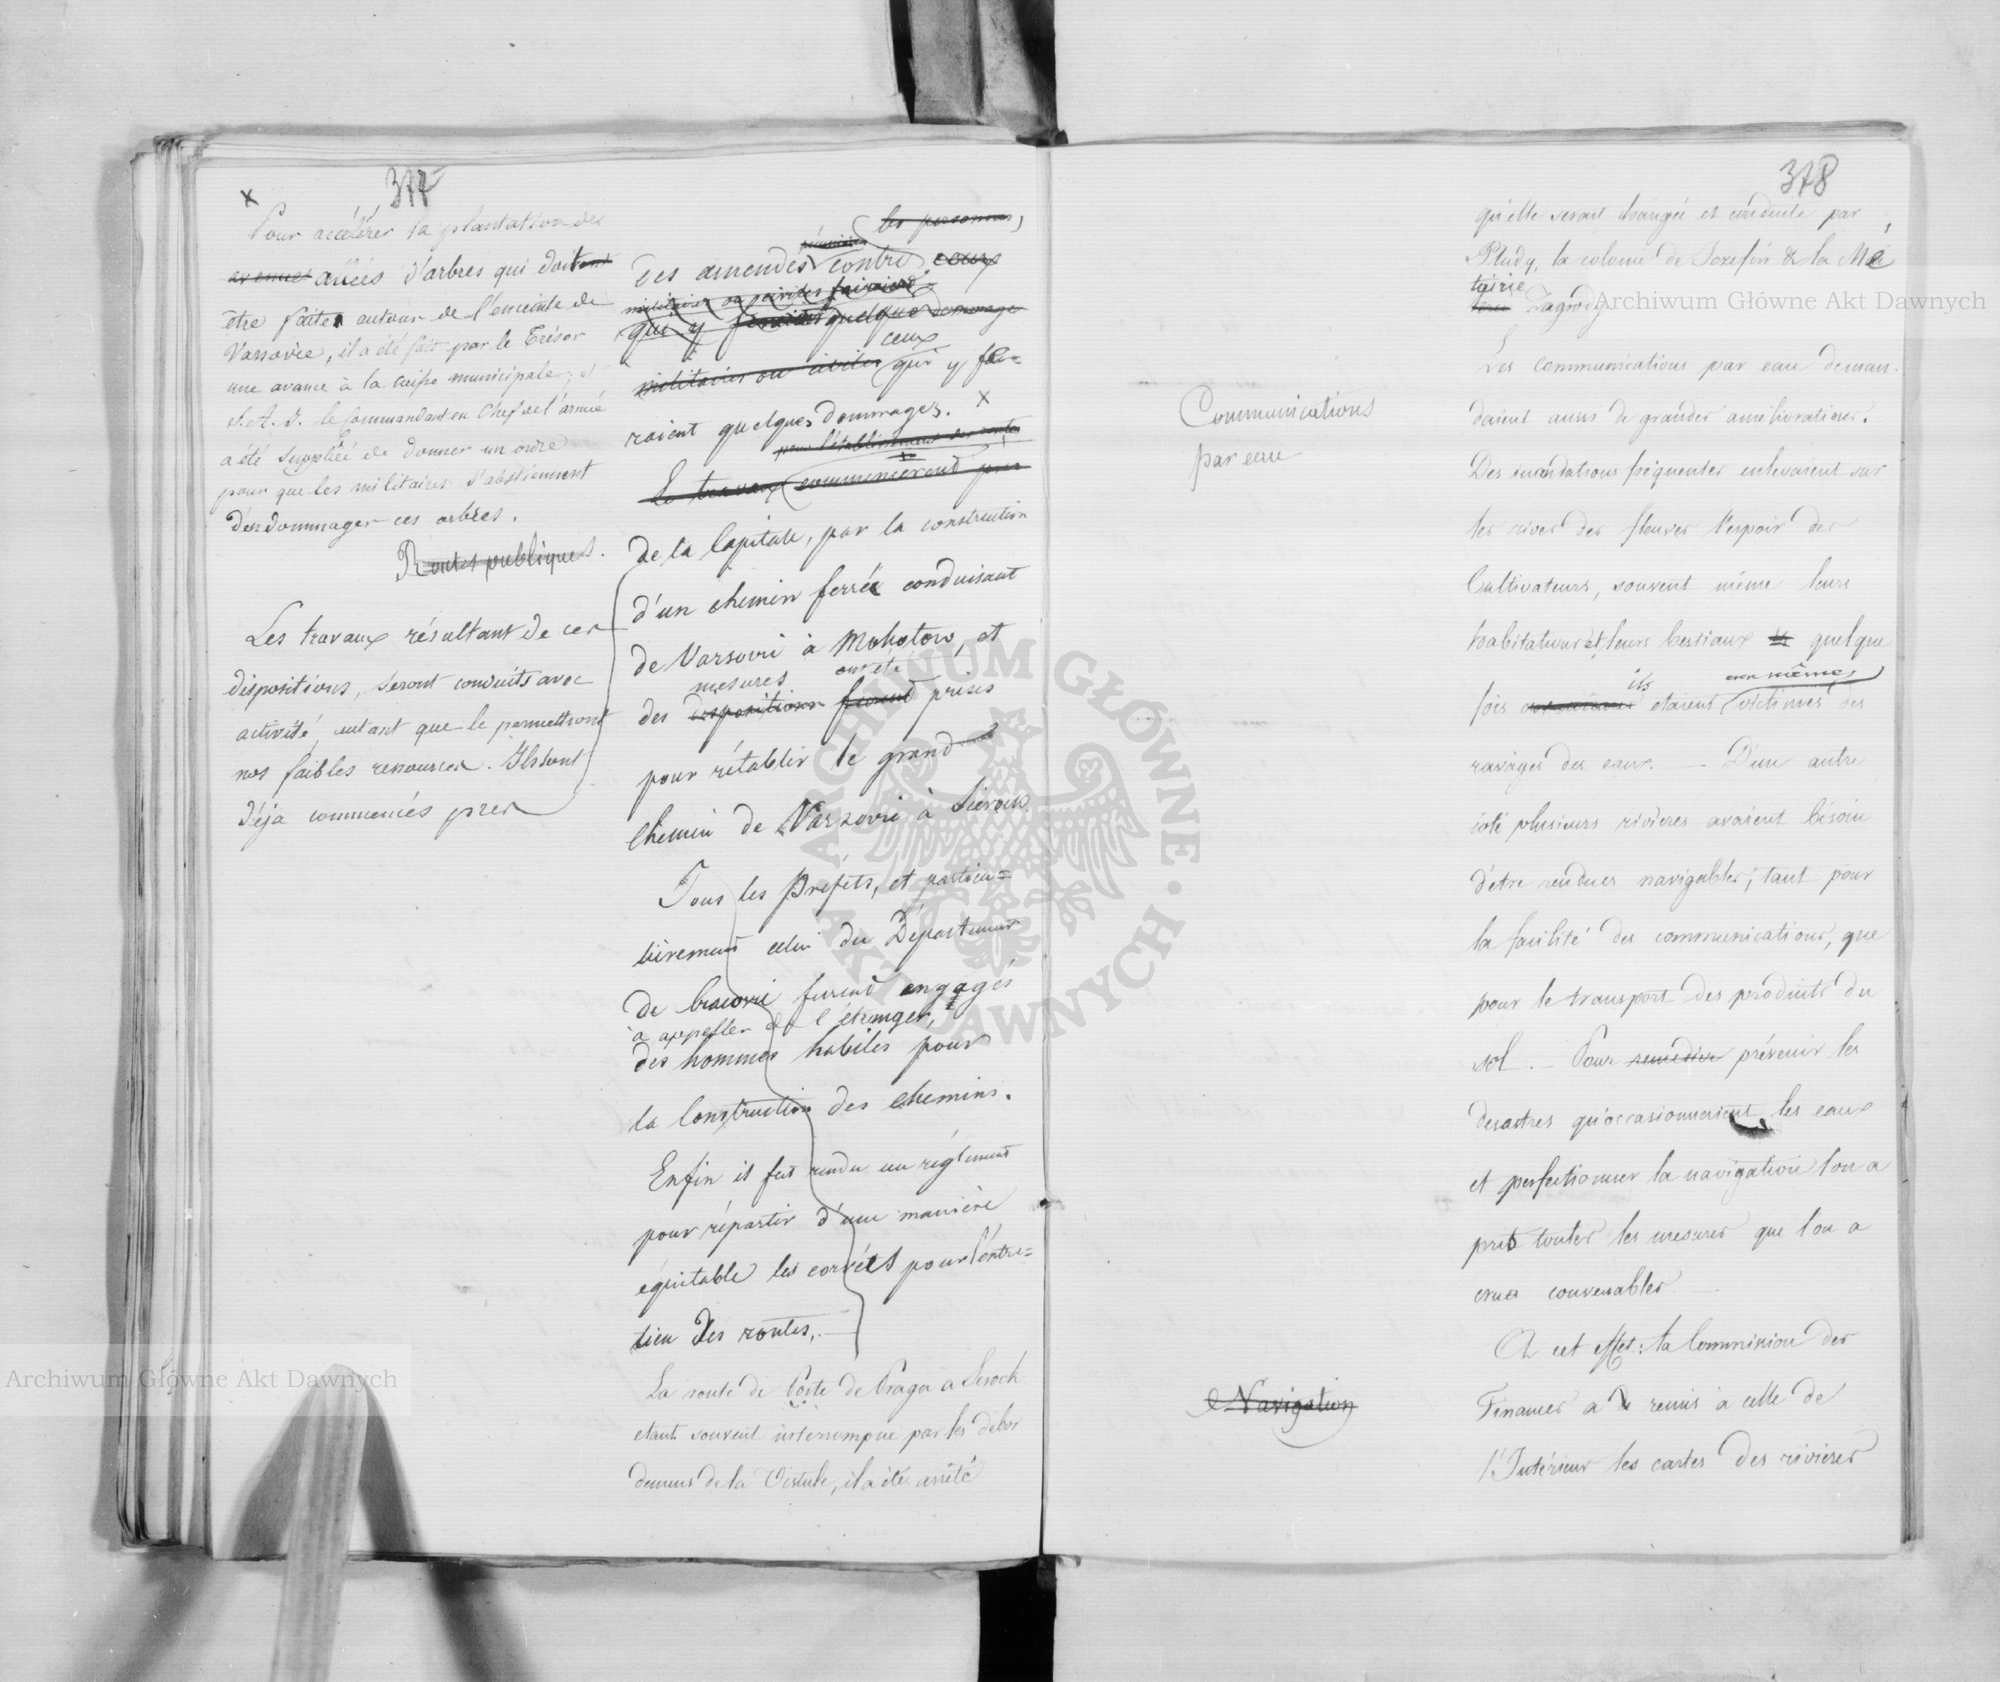 377
x
Pour accélérer la plantation des
avenues allées d'arbres qui doivent
être faites autour de l'enceinte de
Varsovie, il a été fait par le Trésor
une avance à la caisse municipale; et
S. A. I. le Commandant en Chef de l'armée
a été suppliée de donner un ordre
pour que les militaires s'abstiennent
d'endommager ces arbres.
Routes publiques.
Les travaux résultant de ces
dispositions, seront conduits avec
activité, autant que le permettront
nos faibles ressources. Ils sont
déja commencés près
les personnes,
pécuniaires
des amendes contre ceux
militaires ou civiles
que y quelque dommage
ceux
militaires ou civiles qui y fe=
raient quelques dommages. x
pour l'établissement des routes
Le travaux commencèrent près
de la Capitale, par la construction
d'un chemin ferré conduisant
de Varsovie à Mokotow, et
mesures ont été
des dispositions furent prises
pour rétablir le grand
chemin de Varsovie à Sierock.
Tous les Préfets, et particu=
lièrement celui du Département
de Cracovie furent engagés
à appeller de l'étranger,
des hommes habiles pour
la Construction des chemins.
Enfin il fut rendu un réglement
pour répartir d'une manière
équitable les corvées pour l'entre=
tien des routes.
La route de Poste de Praga a Serock
etant souvent interrompue par les débor
demens de la Vistule, il a été arrêté
378
qu'elle serait changée et conduite par
Pludy, la colonie de Josefin & la Mé
tairie
Zagrody
Communications
par eau
Les communications par eau deman-
daient aussi de grandes améliorations.
Des inondations fréquentes enlevaient sur
les rives des fleuves l'espoir des
Cultivateurs, souvent même leurs
habitations et leurs bestiaux quelque
ils eux mêmes
fois étaient victimes des
ravages des eaux. — D'un autre
coté plusieurs rivieres avaient bésoin
d'etre rendues navigables; tant pour
la facilité des communications, que
pour le transport des produits du
sol. — Pour remédier prévenir les
desastres qu'occasionneraient les eaux
et perfectionner la navigation l'on a
pris toutes les mesures que l'on a
crues convenables. —
Navigation
A cet effet: la Commission des
Finances a remis à celle de
l'Intérieur les cartes des rivieres
Archiwum Główne Akt Dawnych
Archiwum Główne Akt Dawnych
ARCHIWUM GŁÓWNE · AKT DAWNYCH ·